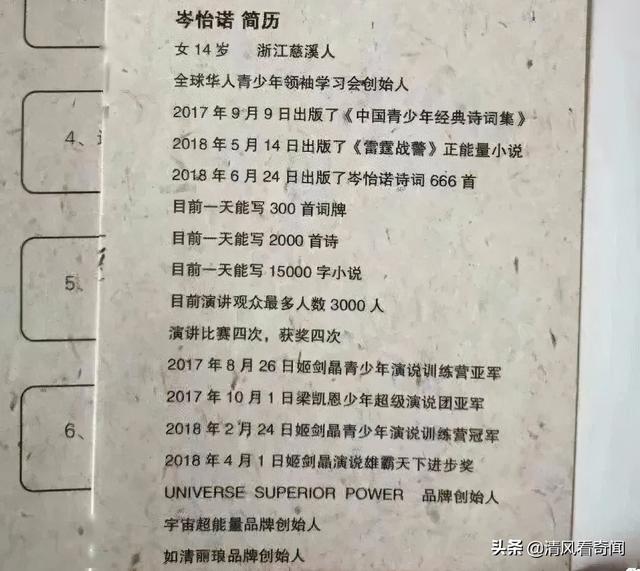 岑怡诺 简历
女 14 岁 浙江慈溪人
全球华人青少年领袖学习会创始人
2017 年 9 月 9 日出版了《中国青少年经典诗词集》
2018 年 5 月 14 日出版了《雷霆战警》正能量小说
2018 年 6 月 24 日出版了岑怡诺诗词 666 首
目前一天能写 300 首词牌
目前一天能写 2000 首诗
目前一天能写 15000 字小说
目前演讲观众最多人数 3000 人
演讲比赛四次，获奖四次
2017 年 8 月 26 日姬剑晶青少年演说训练营亚军
2017 年 10 月 1 日梁凯恩少年超级演说团亚军
2018 年 2 月 24 日姬剑晶青少年演说训练营冠军
2018 年 4 月 1 日姬剑晶演说雄霸天下进步奖
UNIVERSE SUPERIOR POWER 品牌创始人
宇宙超能量品牌创始人
如清丽琅品牌创始人
4、
5、
6、
头条 @清风看奇闻